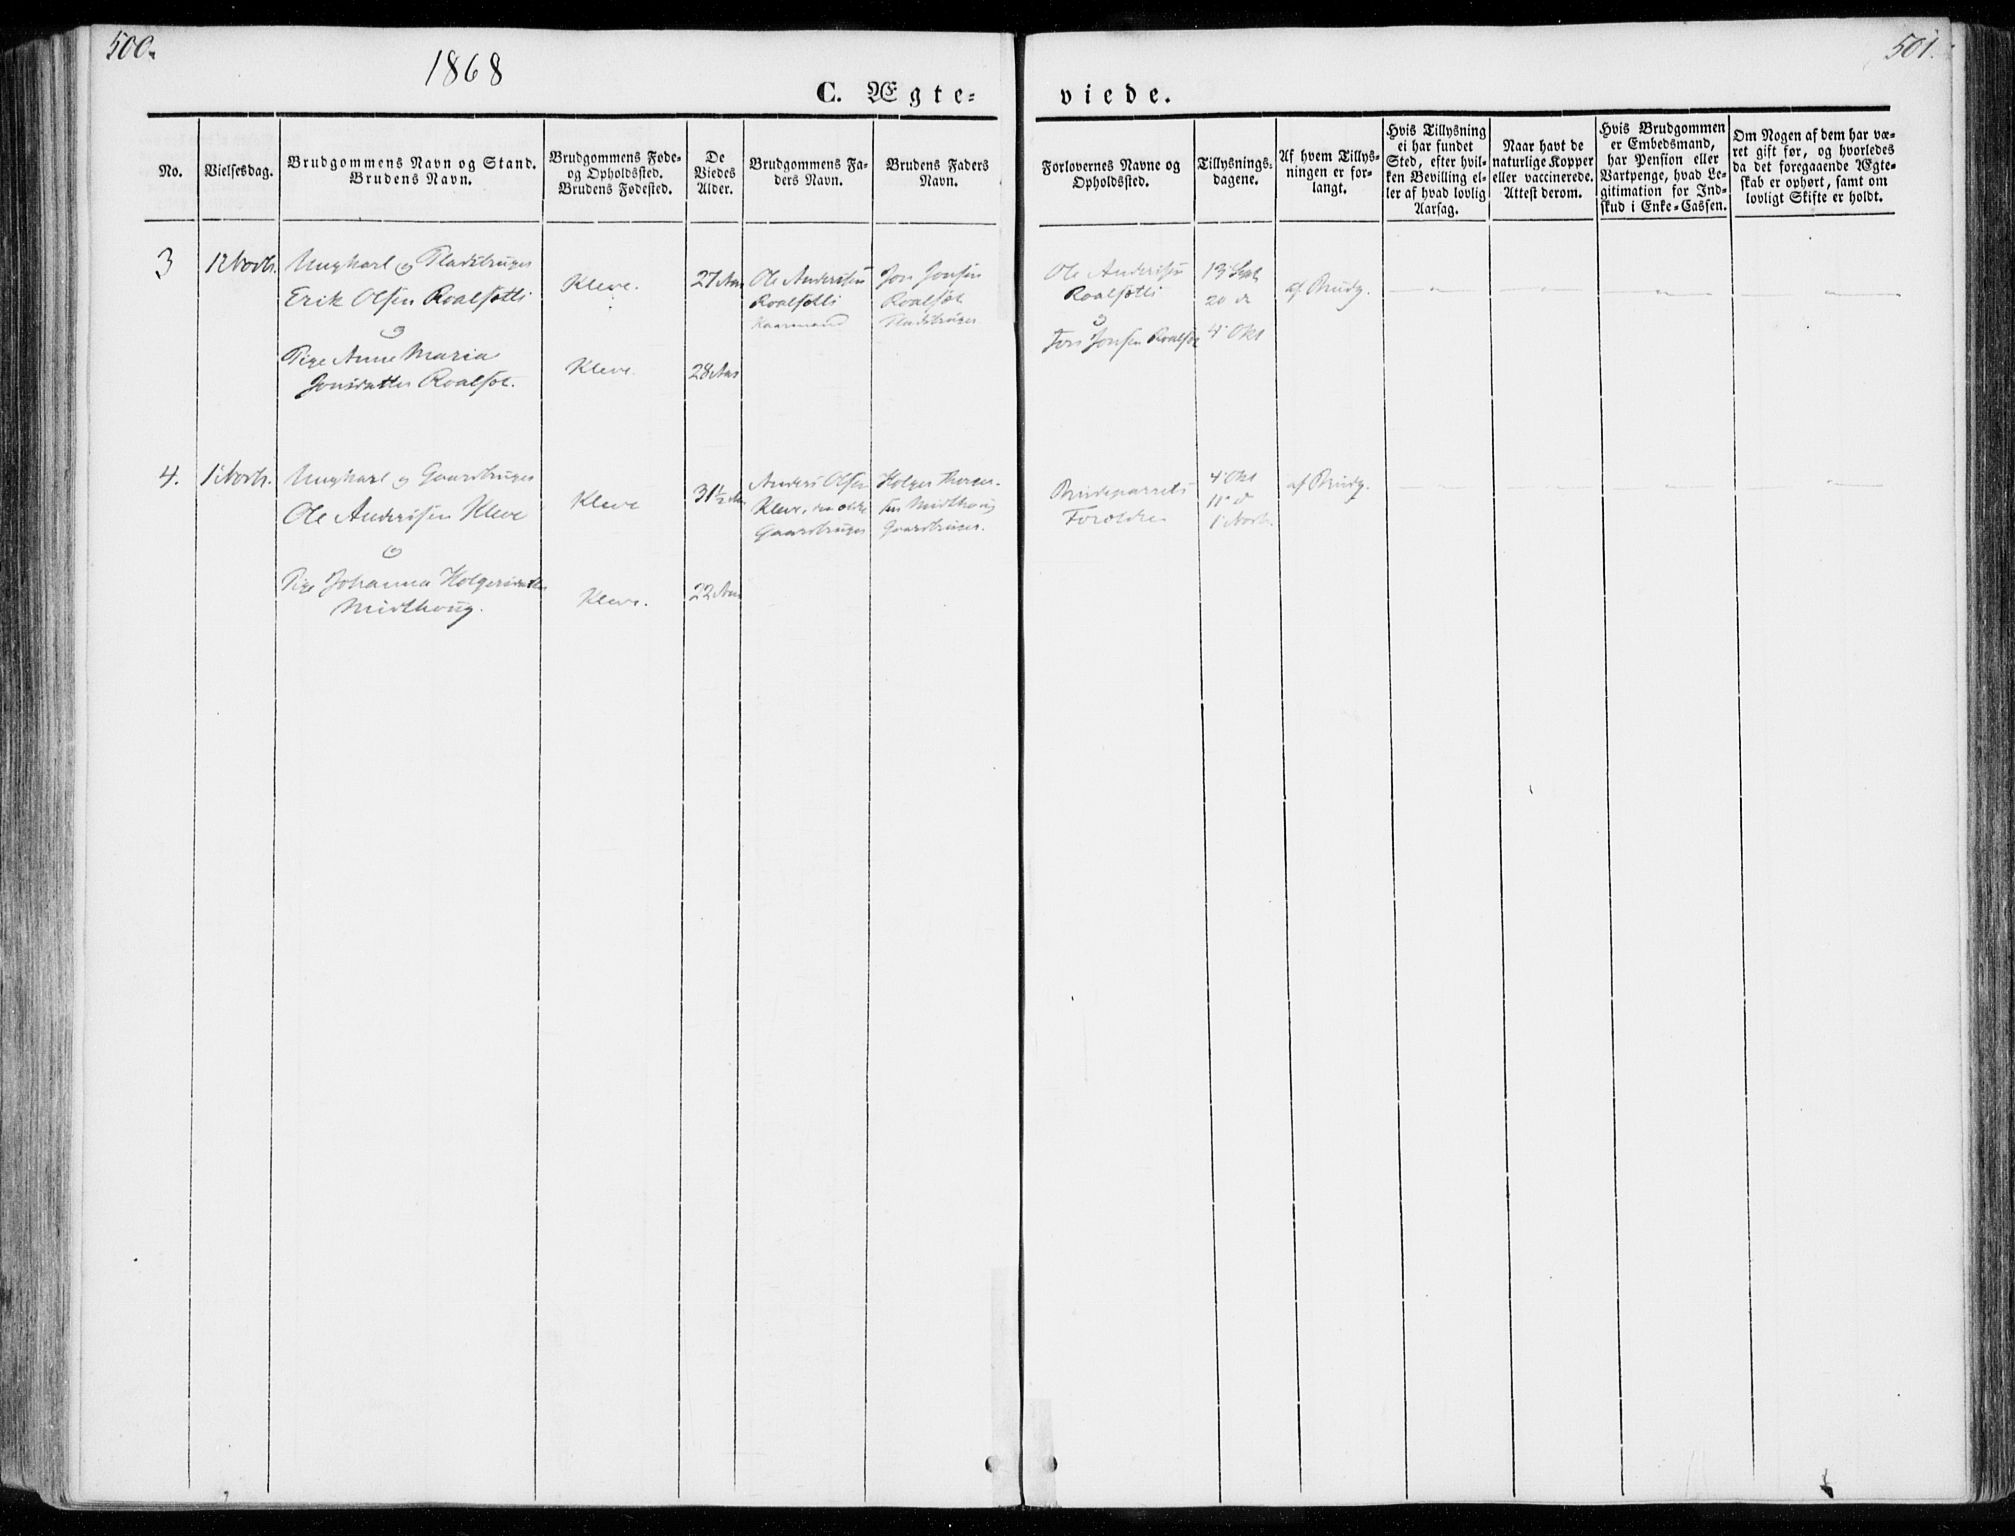 500.
501.
1868
C. Ægte-
viede.
No.
Vielsesdag.
Brudgommens Navn og Stand.
Brudens Navn.
Brudgommens Føde-
og Opholdssted.
Brudens Fødested.
De
Viedes
Alder.
Brudgommens Fa-
ders Navn.
Brudens Faders
Navn.
Forlovernes Navne og
Opholdssted.
Tillysnings-
dagene.
Af hvem Tillys-
ningen er for-
langt.
Hvis Tillysning
ei har fundet
Sted, efter hvil-
ken Bevilling el-
ler af hvad lovlig
Aarsag.
Naar havt de
naturlige Kopper
eller vaccinerede.
Attest derom.
Hvis Brudgommen
er Embedsmand,
har Pension eller
Vartpenge, hvad Le-
gitimation for Ind-
skud i Enke-Cassen.
Om Nogen af dem har væ-
ret gift før, og hvorledes
da det foregaaende Ægte-
skab er ophørt, samt om
lovligt Skifte er holdt.
3
Novbr.
Ungkarl og Pladsbruger
Erik Olsen Roalsøtli
o
Pige Anne Maria
Jonsdatter Roalsøt.
Kleve.
Kleve.
27 Aar
28 Aar
Ole Andersen
Roalsøtli
Kaarmand
Jon Jonsen
Roalsøt
Pladsbruger
Ole Andersen
Roalsøtli
o
Jon Jonsen Roalsøt
13 Sept
20 d
4 Okt
af Brudg.
4.
1 Novbr.
Ungkarl og Gaardbruger
Ole Andersen Kleve
o
Pige Johanna Holgersdatter
Midthoug.
Kleve
Kleve.
31½ Aar
22 Aar
Anders Olsen
Kleve,
Gaardbruger
Holger
sen Midthoug
Gaardbruger.
Brudeparrets
Forældre
4 Okt
11 d
1 Novbr.
af Brudg.